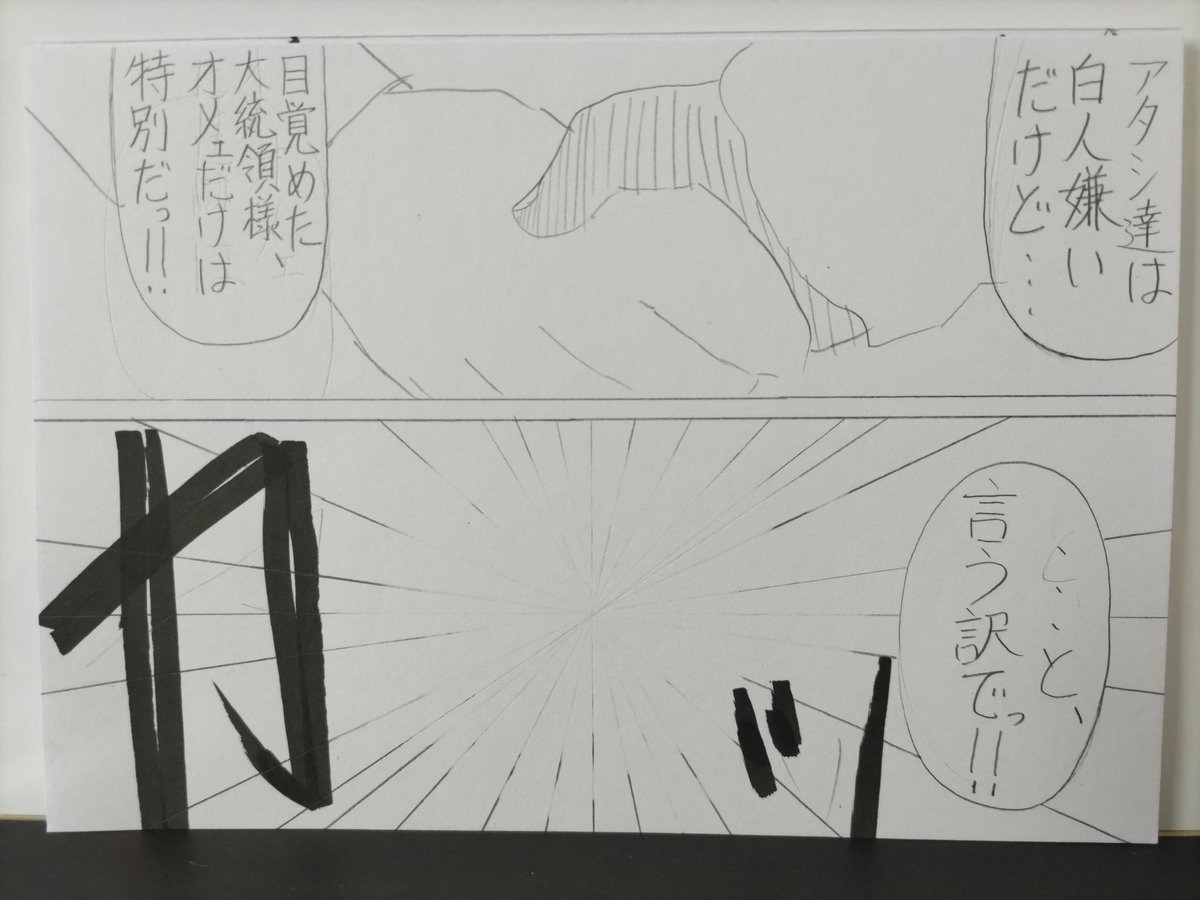 アタシ達は
白人嫌い
だけど・・・・
目覚めた
大統領様、
オメェだけは
特別だっ!!
・・・と、
言う訳でっ!!